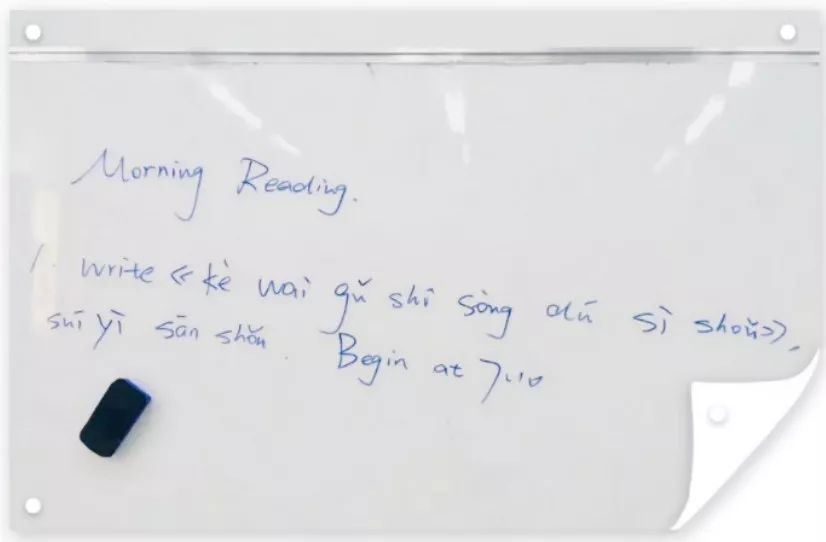 Morning Reading.
1. write «kè wài gǔ shī sòng dú sì shǒu»,
suí yì sān shǒu. Begin at 7:10